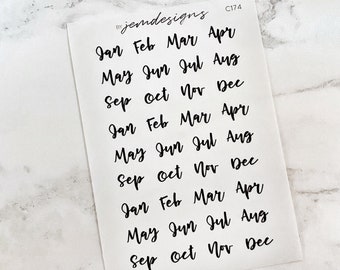 BY jemdesigns C174
Jan Feb Mar Apr
May Jun Jul Aug
Sep Oct Nov Dec
Jan Feb Mar Apr
May Jun Jul Aug
Sep Oct Nov Dec
Jan Feb Mar Apr
May Jun Jul Aug
Sep Oct Nov Dec